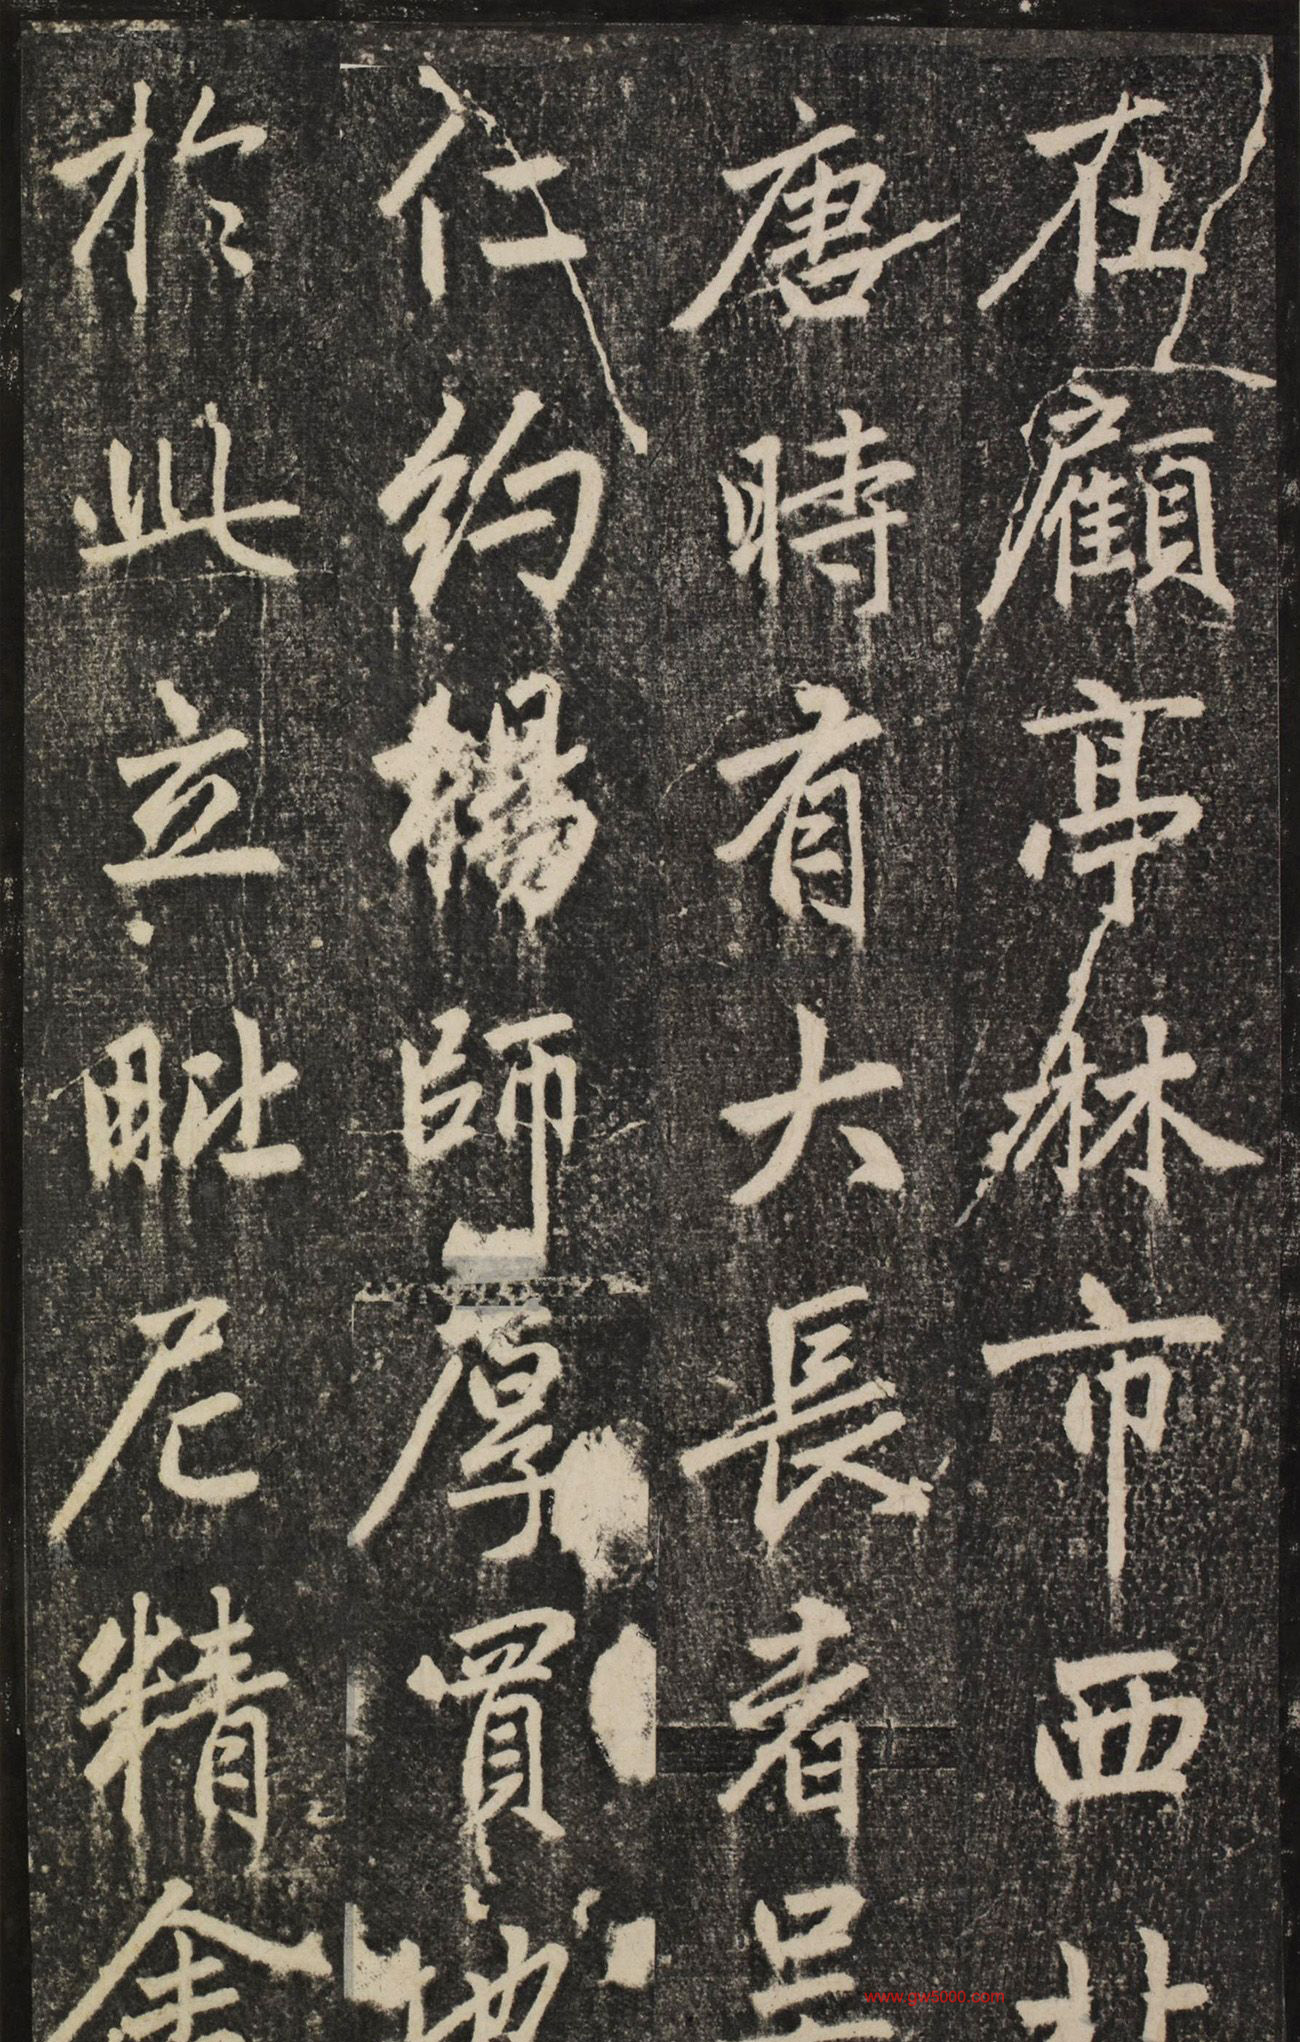 在顧亭林市西北
唐時有大長者呂
仁約橺師厚買地
於此立毗尼精舍
www.gw5000.com